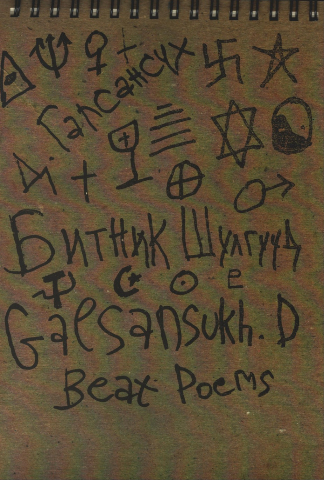 Галсансүх
Битник Шүлгүүд
Galsansukh. D
Beat Poems